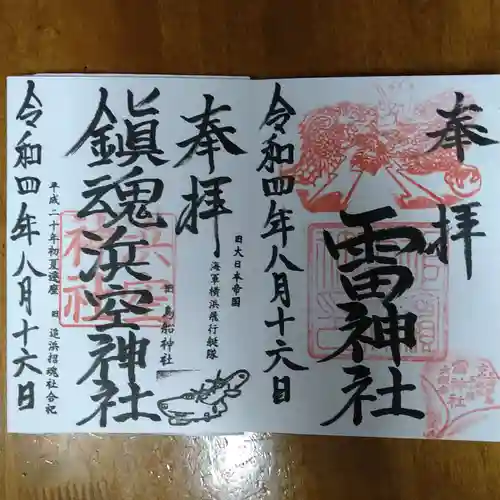 奉拝
雷神社
令和四年八月十六日
奉拝
旧大日本帝国
海軍横浜飛行艇隊
鳥船神社
鎮魂浜空神社
平成二十年初夏遷座
旧追浜招魂社合祀
令和四年八月十六日